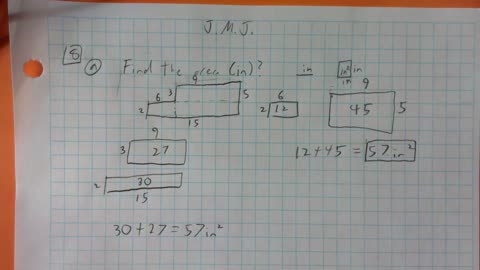 J.M.J.
8
a Find the area (in)? in in² in
in
6 3 5 2 15
6 2 12
9 45 5
9 3 27
12+45 = 57in²
2 30 15
30+27=57in²